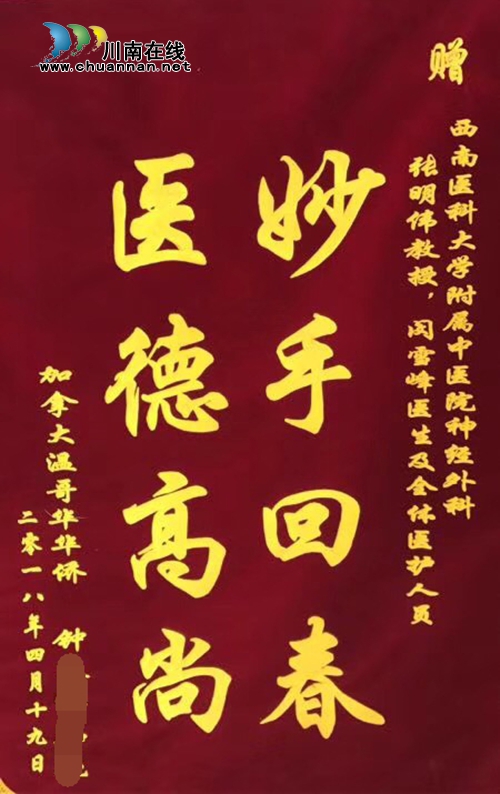 川南在线
www.chuannan.net
赠
西南医科大学附属中医院神经外科
张明伟教授，闵雪峰医生及全体医护人员
妙手回春
医德高尚
加拿大温哥华华侨 钟
二零一八年四月十九日